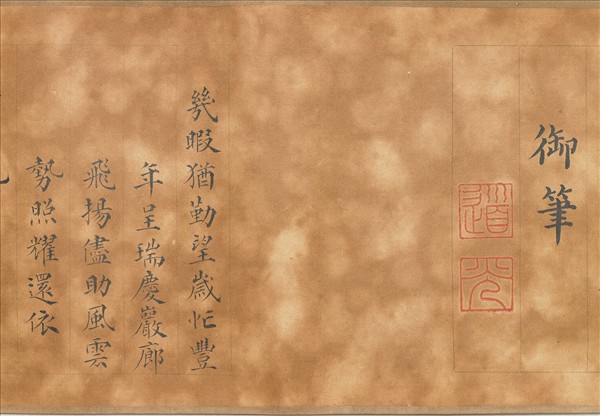 御筆
道
光
幾暇猶勤望歲忙豐
年呈瑞慶巖廊
飛揚儘助風雲
勢照耀還依